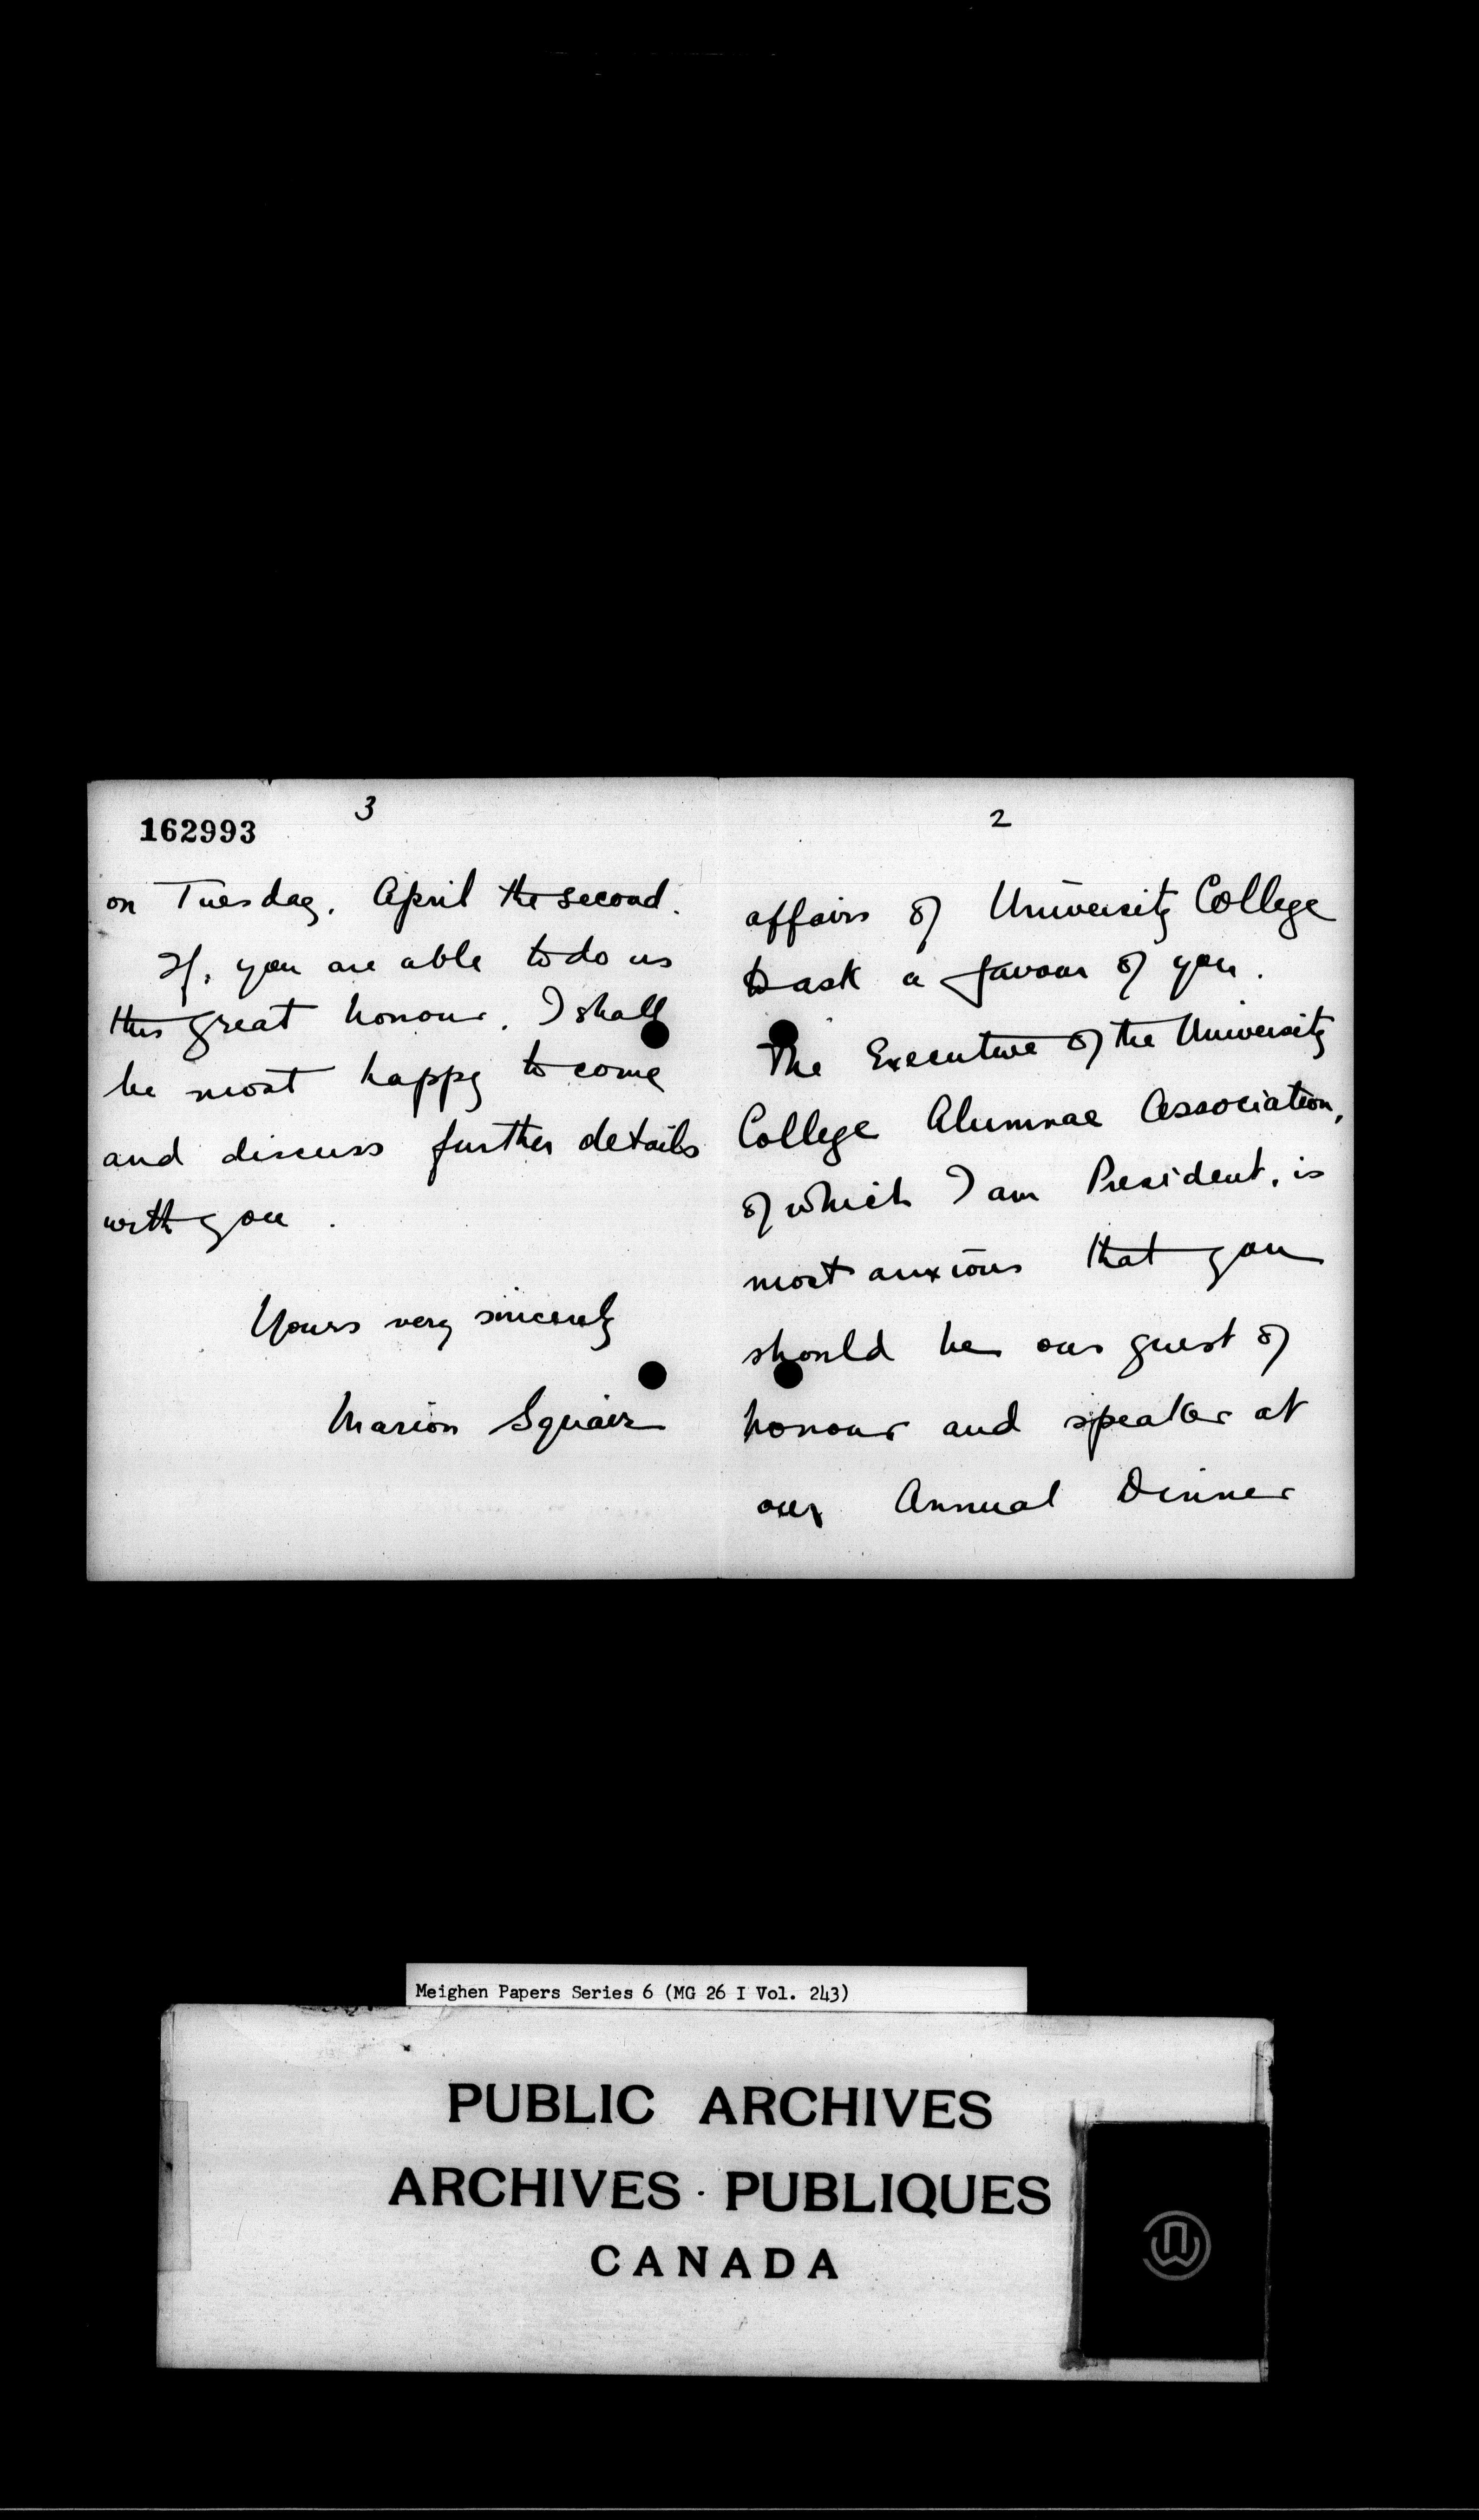 162993
3
on Tuesday, April the second.
If, you are able to do us
this great honour, I shall
be most happy to come
and discuss further details
with you.
Yours very sincerely
Marion Squair
2
affairs of University College
to ask a favour of you.
The Executive of the University
College Alumnae Association,
of which I am President, is
most anxious that you
should be our guest of
honour and speaker at
our Annual Dinner
Meighen Papers Series 6 (MG 26 I Vol. 243)
PUBLIC ARCHIVES
ARCHIVES · PUBLIQUES
CANADA